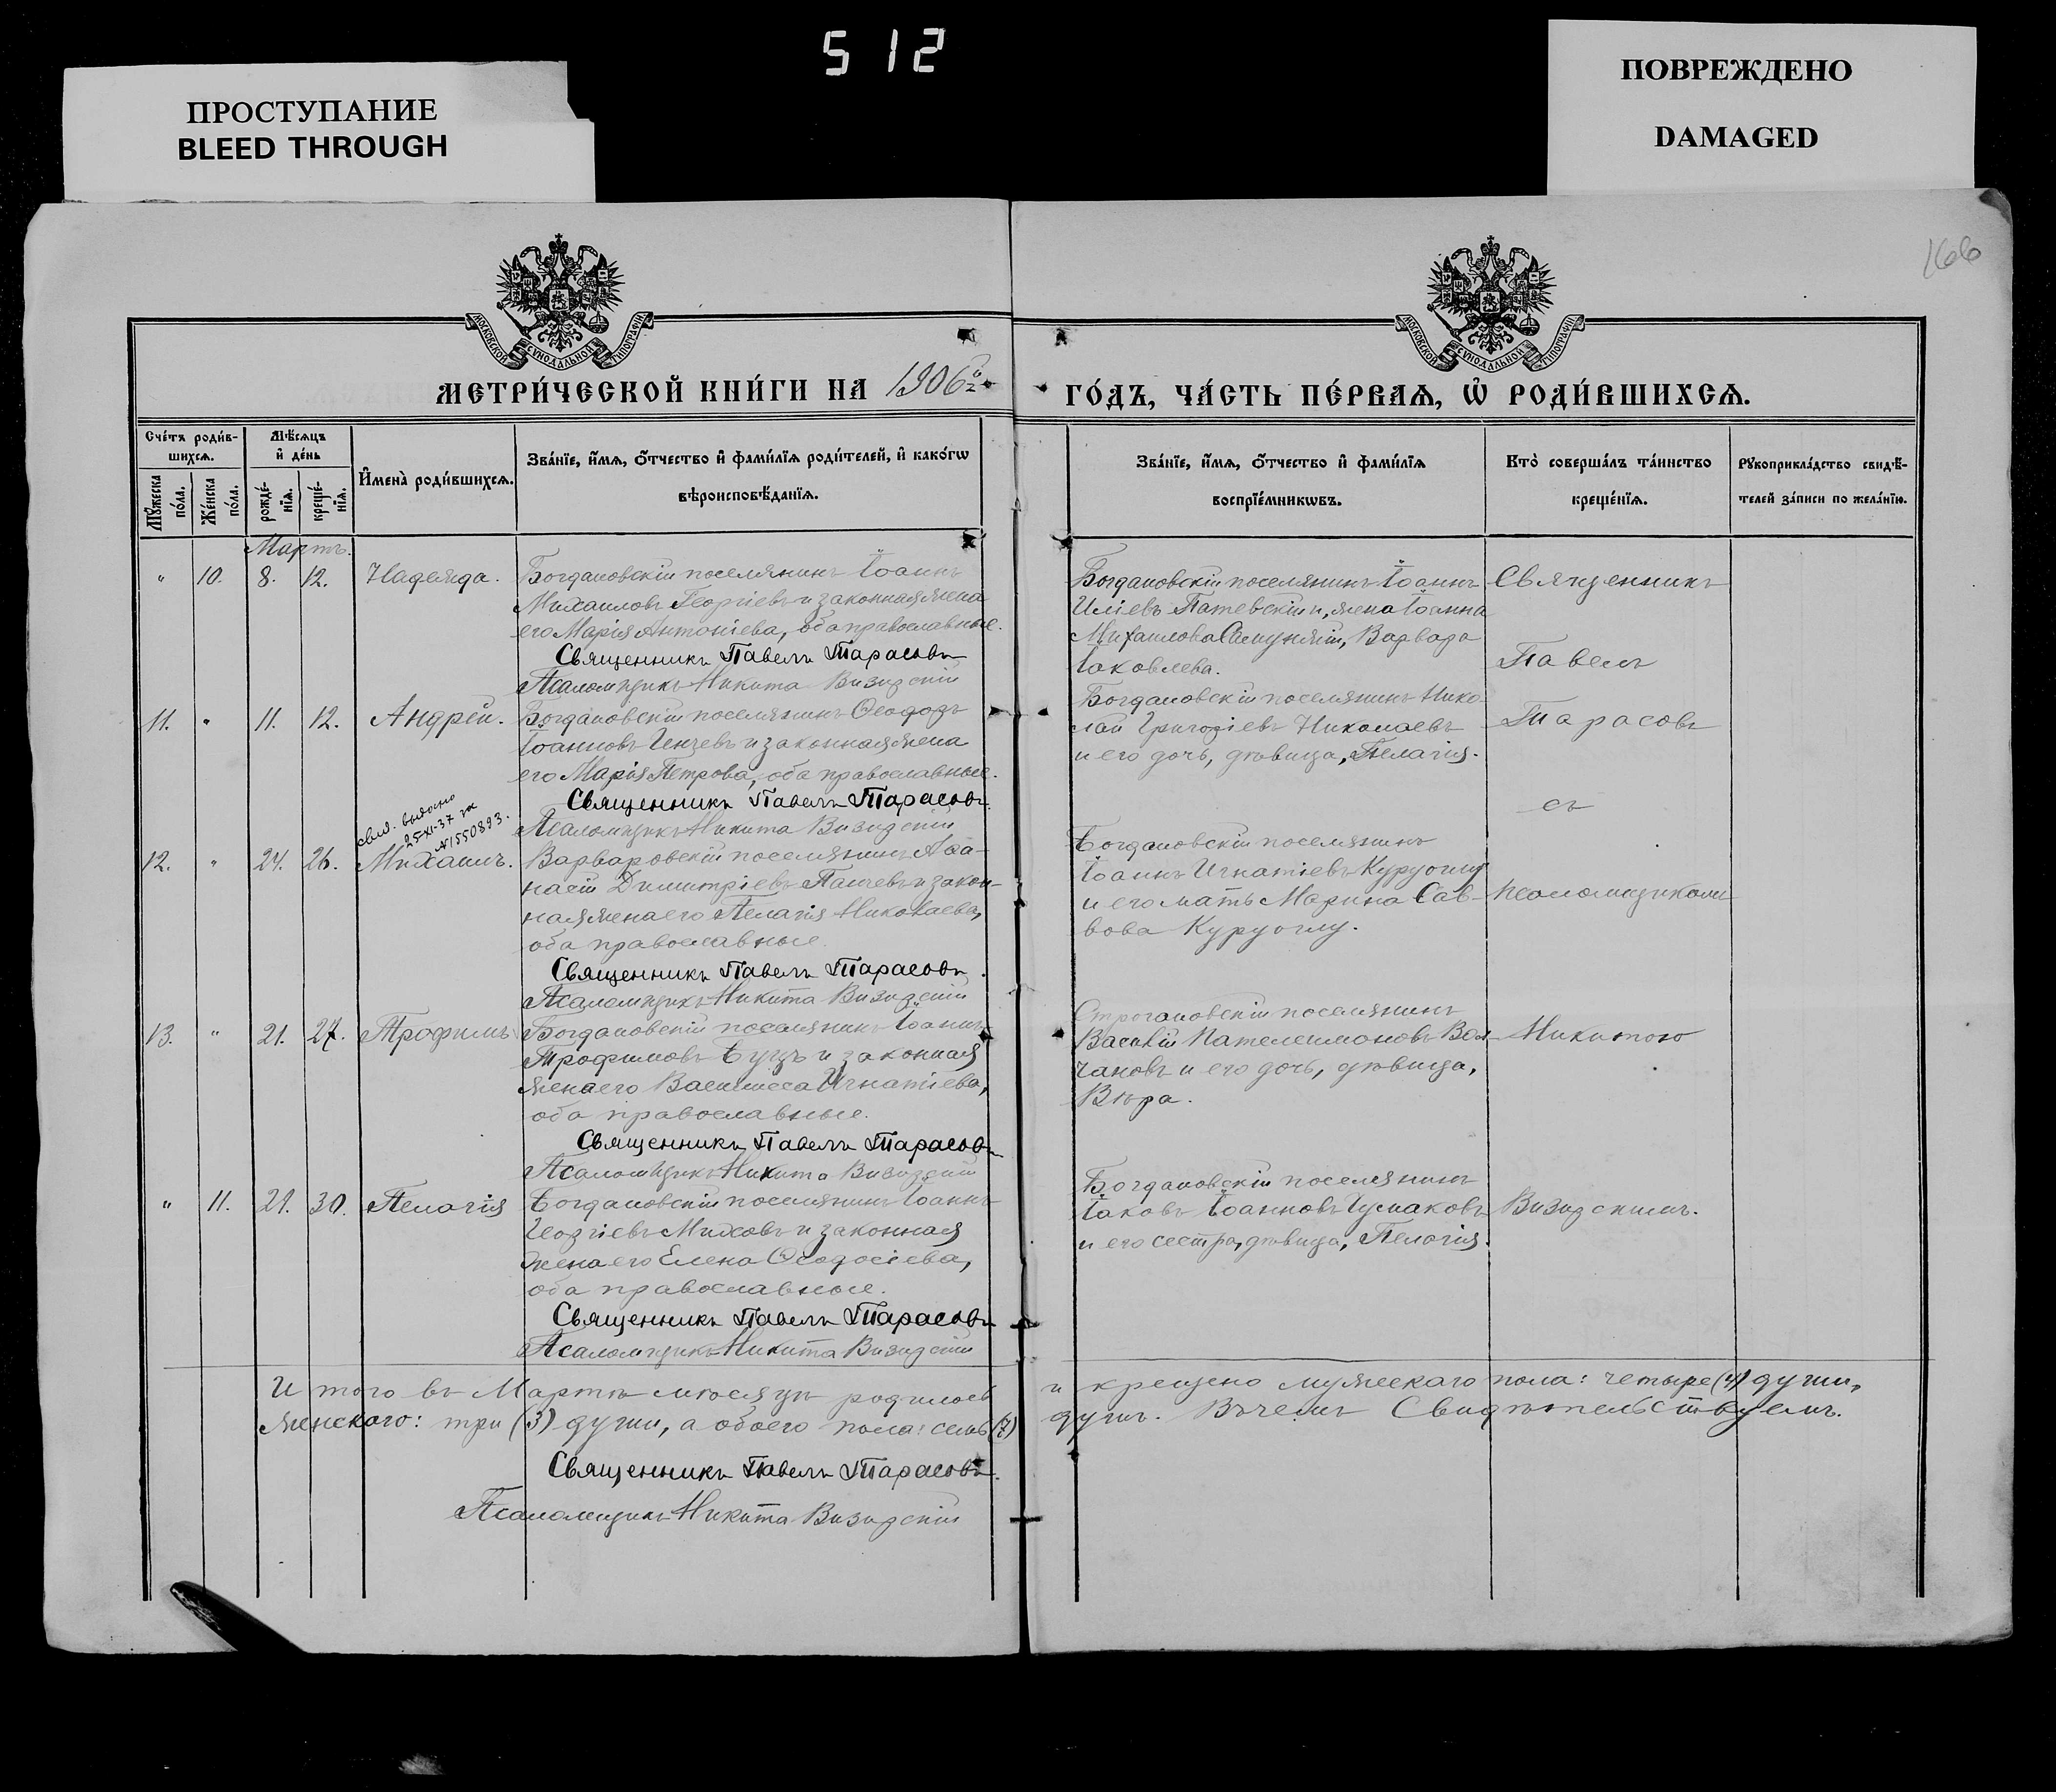 512
ПРОСТУПАНИЕ
BLEED THROUGH
ПОВРЕЖДЕНО
DAMAGED
166
МОСКОВСКОЙ СѴНОДАЛЬНОЙ ТИПОГРАФІИ
МОСКОВСКОЙ СѴНОДАЛЬНОЙ ТИПОГРАФІИ
МЕТРИ́ЧЕСКОЙ КНИ́ГИ НА 1906й
ГО́ДЪ, ЧА́СТЬ ПЕ́РВАѦ, Ѡ҆ РОДИ́ВШИХСѦ.
Сче́тъ роди́в-
шихсѧ.
Мꙋ́жеска по́ла.
Же́нска по́ла.
Мѣ́сѧцъ
и҆ де́нь
рожде́-
нїѧ.
креще́-
нїѧ.
И҆мена̀ роди́вшихсѧ.
Зва́нїе, и҆́мѧ, ѻ҆́тчество и҆ фами́лїѧ роди́телей, и҆ како́гѡ
вѣроисповѣ́данїѧ.
Зва́нїе, и҆́мѧ, ѻ҆́тчество и҆ фами́лїѧ
воспрїе́мникѡвъ.
Кто̀ соверша́лъ та́инство
креще́нїѧ.
Рꙋкоприкла́дство свидѣ́-
телей за́писи по жела́нїю.
Мартъ.
" 10. 8. 12. Надежда. Богдановскій поселянинъ Іоаннъ
Михаиловъ Георгіевъ и законная жена
его Марія Антоніева, оба православные.
Священникъ Павелъ Тарасовъ
Псаломщикъ Никита Визирскій
Богдановскій поселянинъ Іоаннъ
Иліевъ и, жена Іоанна
Михаилова Варвара
Іаковлева.
11. " 11. 12. Андрей. Богдановскій поселянинъ Ѳеодоръ
Іоанновъ Генчевъ и законная жена
его Марія Петрова, оба православные.
Священникъ Павелъ Тарасовъ.
Псаломщикъ Никита Визирскій
Богдановскій поселянинъ Нико-
лай Григоріевъ Николаевъ
и его дочь, дѣвица, Пелагія.
свид. выдано
25-XI-37 за
№1550893.
12. " 24. 26. Михаилъ. Варваровскій поселянинъ Аѳа-
насій Димитріевъ Панчевъ и закон-
ная жена его Пелагія Николаева,
оба православные.
Священникъ Павелъ Тарасовъ.
Псаломщикъ Никита Визирскій
Богдановскій поселянинъ
Іоаннъ Игнатіевъ Куруоглу
и его мать Марина Сав-
вова Куруоглу.
13. " 21. 27. Трофимъ Богдановскій поселянинъ Іоаннъ
Трофимовъ Буцъ и законная
жена его Василисса Игнатіева,
оба православные.
Священникъ Павелъ Тарасовъ
Псаломщикъ Никита Визирскій
Строгановскій поселянинъ
Василій Пателеимоновъ Вол-
чановъ и его дочь, дѣвица,
Вѣра.
" 11. 21. 30. Пелагія Богдановскій поселянинъ Іоаннъ
Георгіевъ Миховъ и законная
жена его Елена Ѳеодосіева,
оба православные.
Священникъ Павелъ Тарасовъ
Псаломщикъ Никита Визирскій
Богдановскій поселянинъ
Іаковъ Іоанновъ Чумаковъ
и его сестра, дѣвица, Пелагія.
Священникъ
Павелъ
Тарасовъ
съ
псаломщикомъ
Никитою
Визирскимъ.
И того въ Мартѣ мѣсяцѣ родилось и крещено мужескаго пола: четыре (4) души,
женскаго: три (3) души, а обоего пола: семь (7) душъ. Въ чемъ Свидѣтельствуемъ.
Священникъ Павелъ Тарасовъ.
Псаломщикъ Никита Визирскій